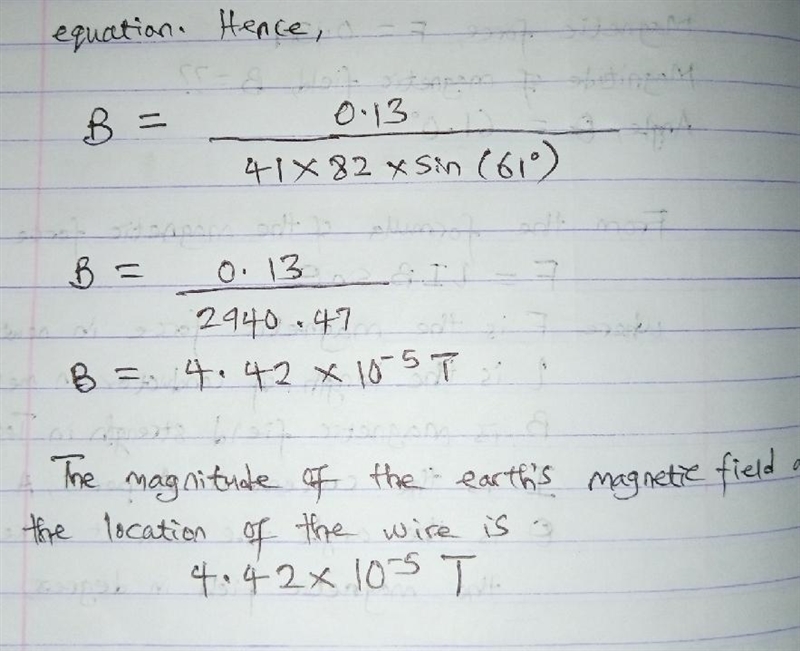 equation. Hence,
B = 0.13
41 × 82 × sin (61°)
B = 0.13
2940.47
B = 4.42 × 10⁻⁵ T
The magnitude of the earth's magnetic field
the location of the wire is
4.42 × 10⁻⁵ T